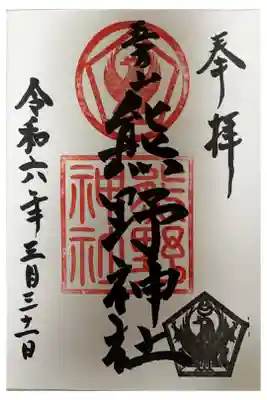 奉拝
青山熊野神社
熊野
神社
令和六年三月三十一日